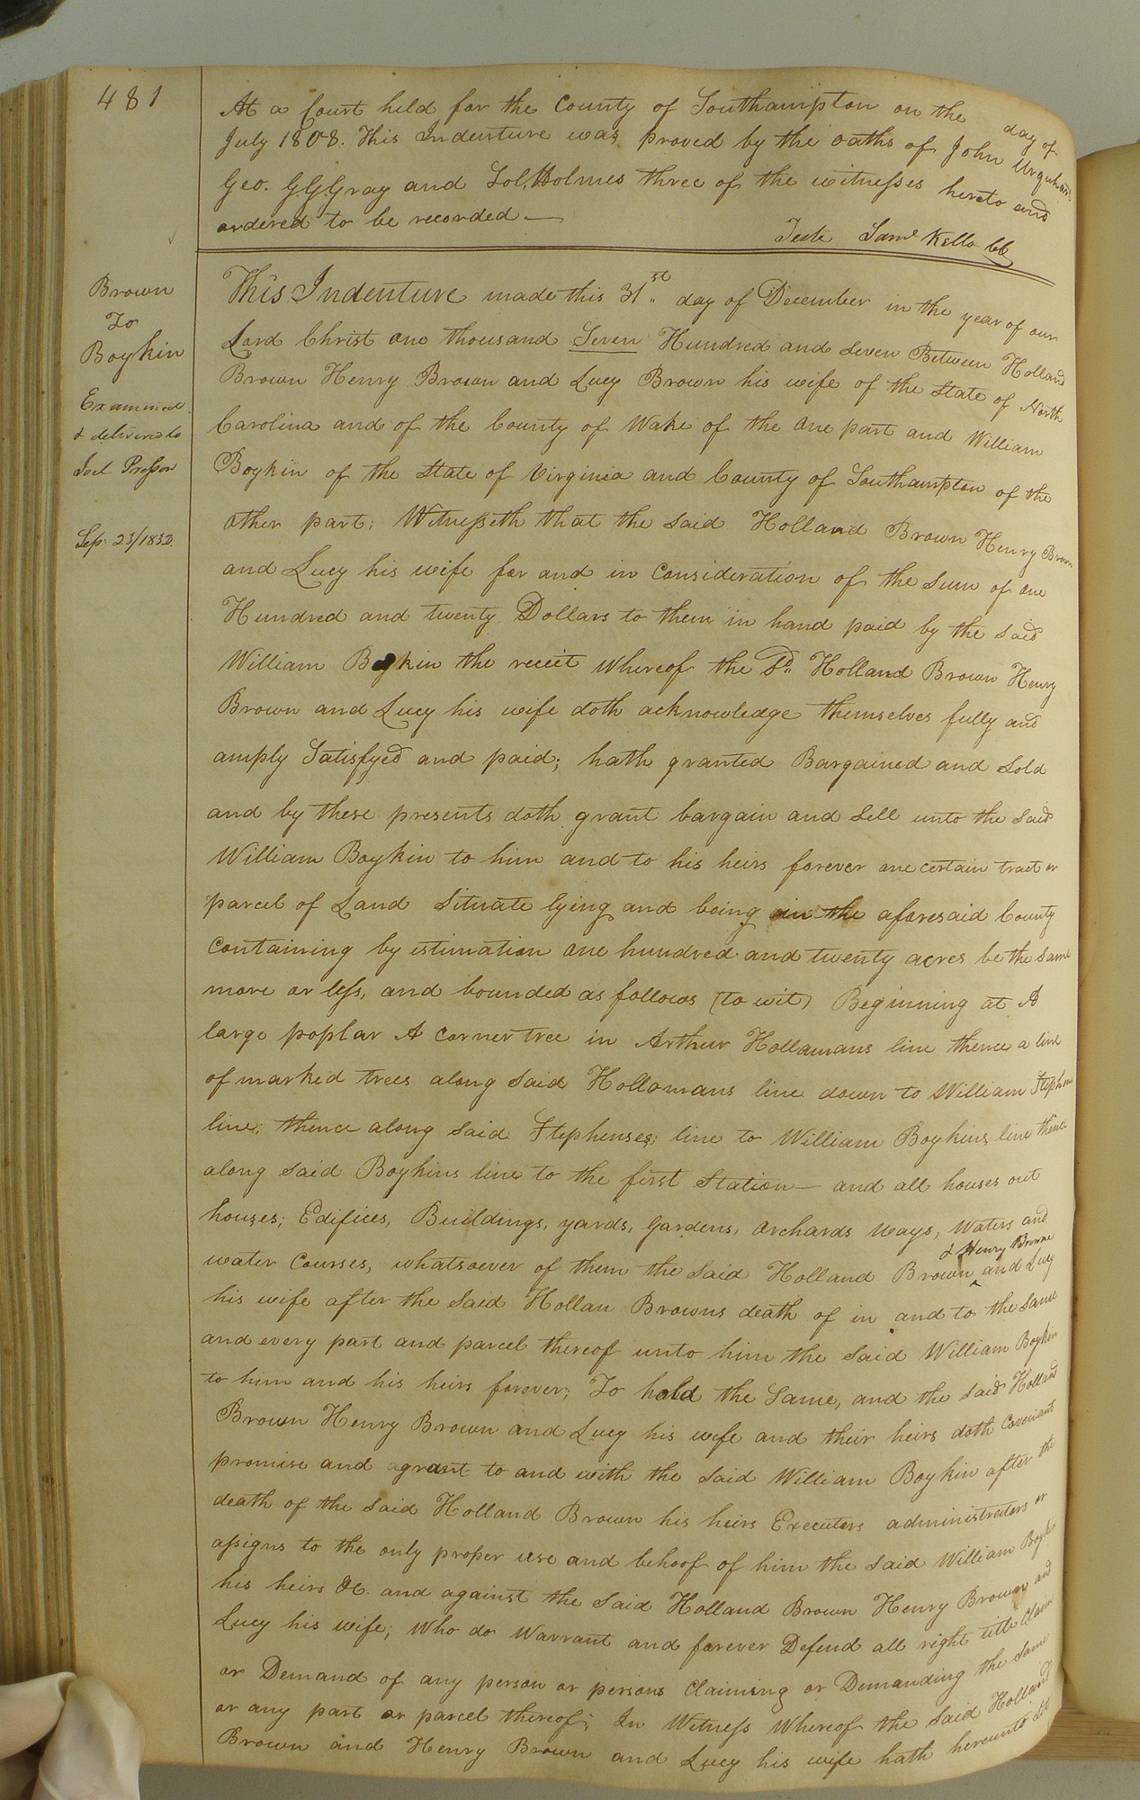 481
At a Court held for the County of Southampton on the day of
July 1808. This Indenture was proved by the oaths of John Urquhart
Geo. G G Gray and Sol. Holmes three of the witnesses hereto and
ordered to be recorded —
Teste Saml Kello CC
Brown
To
Boykin
Examined
& delivered to
Joel
Sep. 23/1832
This Indenture made this 31st day of December in the year of our
Lord Christ one thousand Seven Hundred and Seven Between Holland
Brown Henry Brown and Lucy Brown his wife of the State of North
Carolina and of the County of Wake of the one part and William
Boykin of the State of Virginia and County of Southampton of the
other part; Witnesseth that the said Holland Brown Henry Brown
and Lucy his wife for and in Consideration of the Sum of one
Hundred and twenty Dollars to them in hand paid by the said
William Boykin the receit whereof the Sd. Holland Brown Henry
Brown and Lucy his wife doth acknowledge themselves fully and
amply Satisfyed and paid; hath granted Bargained and Sold
and by these presents doth grant bargain and Sell unto the Said
William Boykin to him and to his heirs forever one certain tract or
parcel of Land Situate lying and being in the aforesaid County
Containing by estimation one hundred and twenty acres be the same
more or less, and bounded as follows (to wit) Beginning at A
large poplar A corner tree in Arthur Hollamans line thence a line
of marked trees along said Hollomans line down to William Stephens
line, thence along said Stephenses line to William Boykins line thence
along said Boykins line to the first Station — and all houses out
houses; Edifices, Buildings, yards, Gardens, orchards ways, Waters and
water Courses, whatsoever of them the Said Holland Brown & Henry Brown and Lucy
his wife after the Said Hollan Browns death of in and to the same
and every part and parcel thereof unto him the said William Boykin
to him and his heirs forever; To hold the Same, and the said Holland
Brown Henry Brown and Lucy his wife and their heirs doth Covenant
promise and agrant to and with the said William Boykin after the
death of the said Holland Brown his heirs Executers administrators or
assigns to the only proper use and behoof of him the said William Boykin
his heirs &c. and against the said Holland Brown Henry Brown and
Lucy his wife; Who do Warrant and forever Defend all right title Claim
or Demand of any person or persons Claiming or Demanding the same
or any part or parcel thereof; In Witness Whereof the said Holland
Brown and Henry Brown and Lucy his wife hath hereunto Set